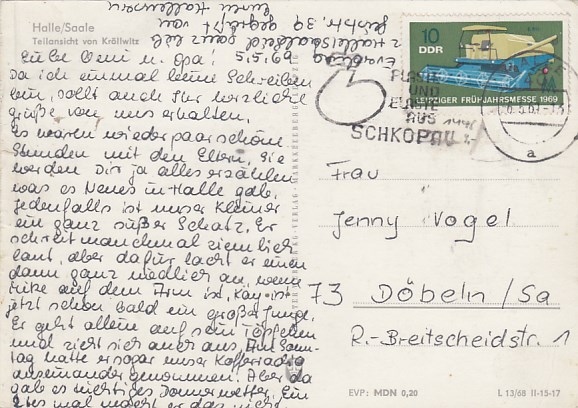 Halle/Saale
Teilansicht von Kröllwitz
5.5.1969
Liebe Omi u. Opa!
Da ich einmal beim Schreiben
bin, sollt auch Ihr herzliche
Grüße von uns erhalten.
Es waren wieder paar schöne
Stunden mit den Eltern. Sie
werden Dir ja alles erzählen
was es Neues in Halle gab.
Jedenfalls ist unser Kleiner
ein ganz süßer Schatz. Er
schreit manchmal ziemlich
laut, aber dafür lacht er einen
dann ganz niedlich an, wenn
auf dem Arm ist. Kay ist
jetzt schon bald ein großer Junge.
Er geht allein auf sein Töpfchen
und zieht sich auch aus. Am Sonn-
tag hatte er sogar unser Kofferradio
auseinander genommen. Aber da
gab es richtiges Donnerwetter. Ein
mal macht er das nicht
ganz lieb
gegrüßt von
Euren Hallensern
10
DDR
LEIPZIGER FRÜHJAHRSMESSE 1969
PLASTE
UND
ELASTE
AUS
SCHKOPAU
a
Frau
Jenny Vogel
73 Döbeln/Sa
R.-Breitscheidstr. 1
EVP: MDN 0,20
L 13/68 II-15-17